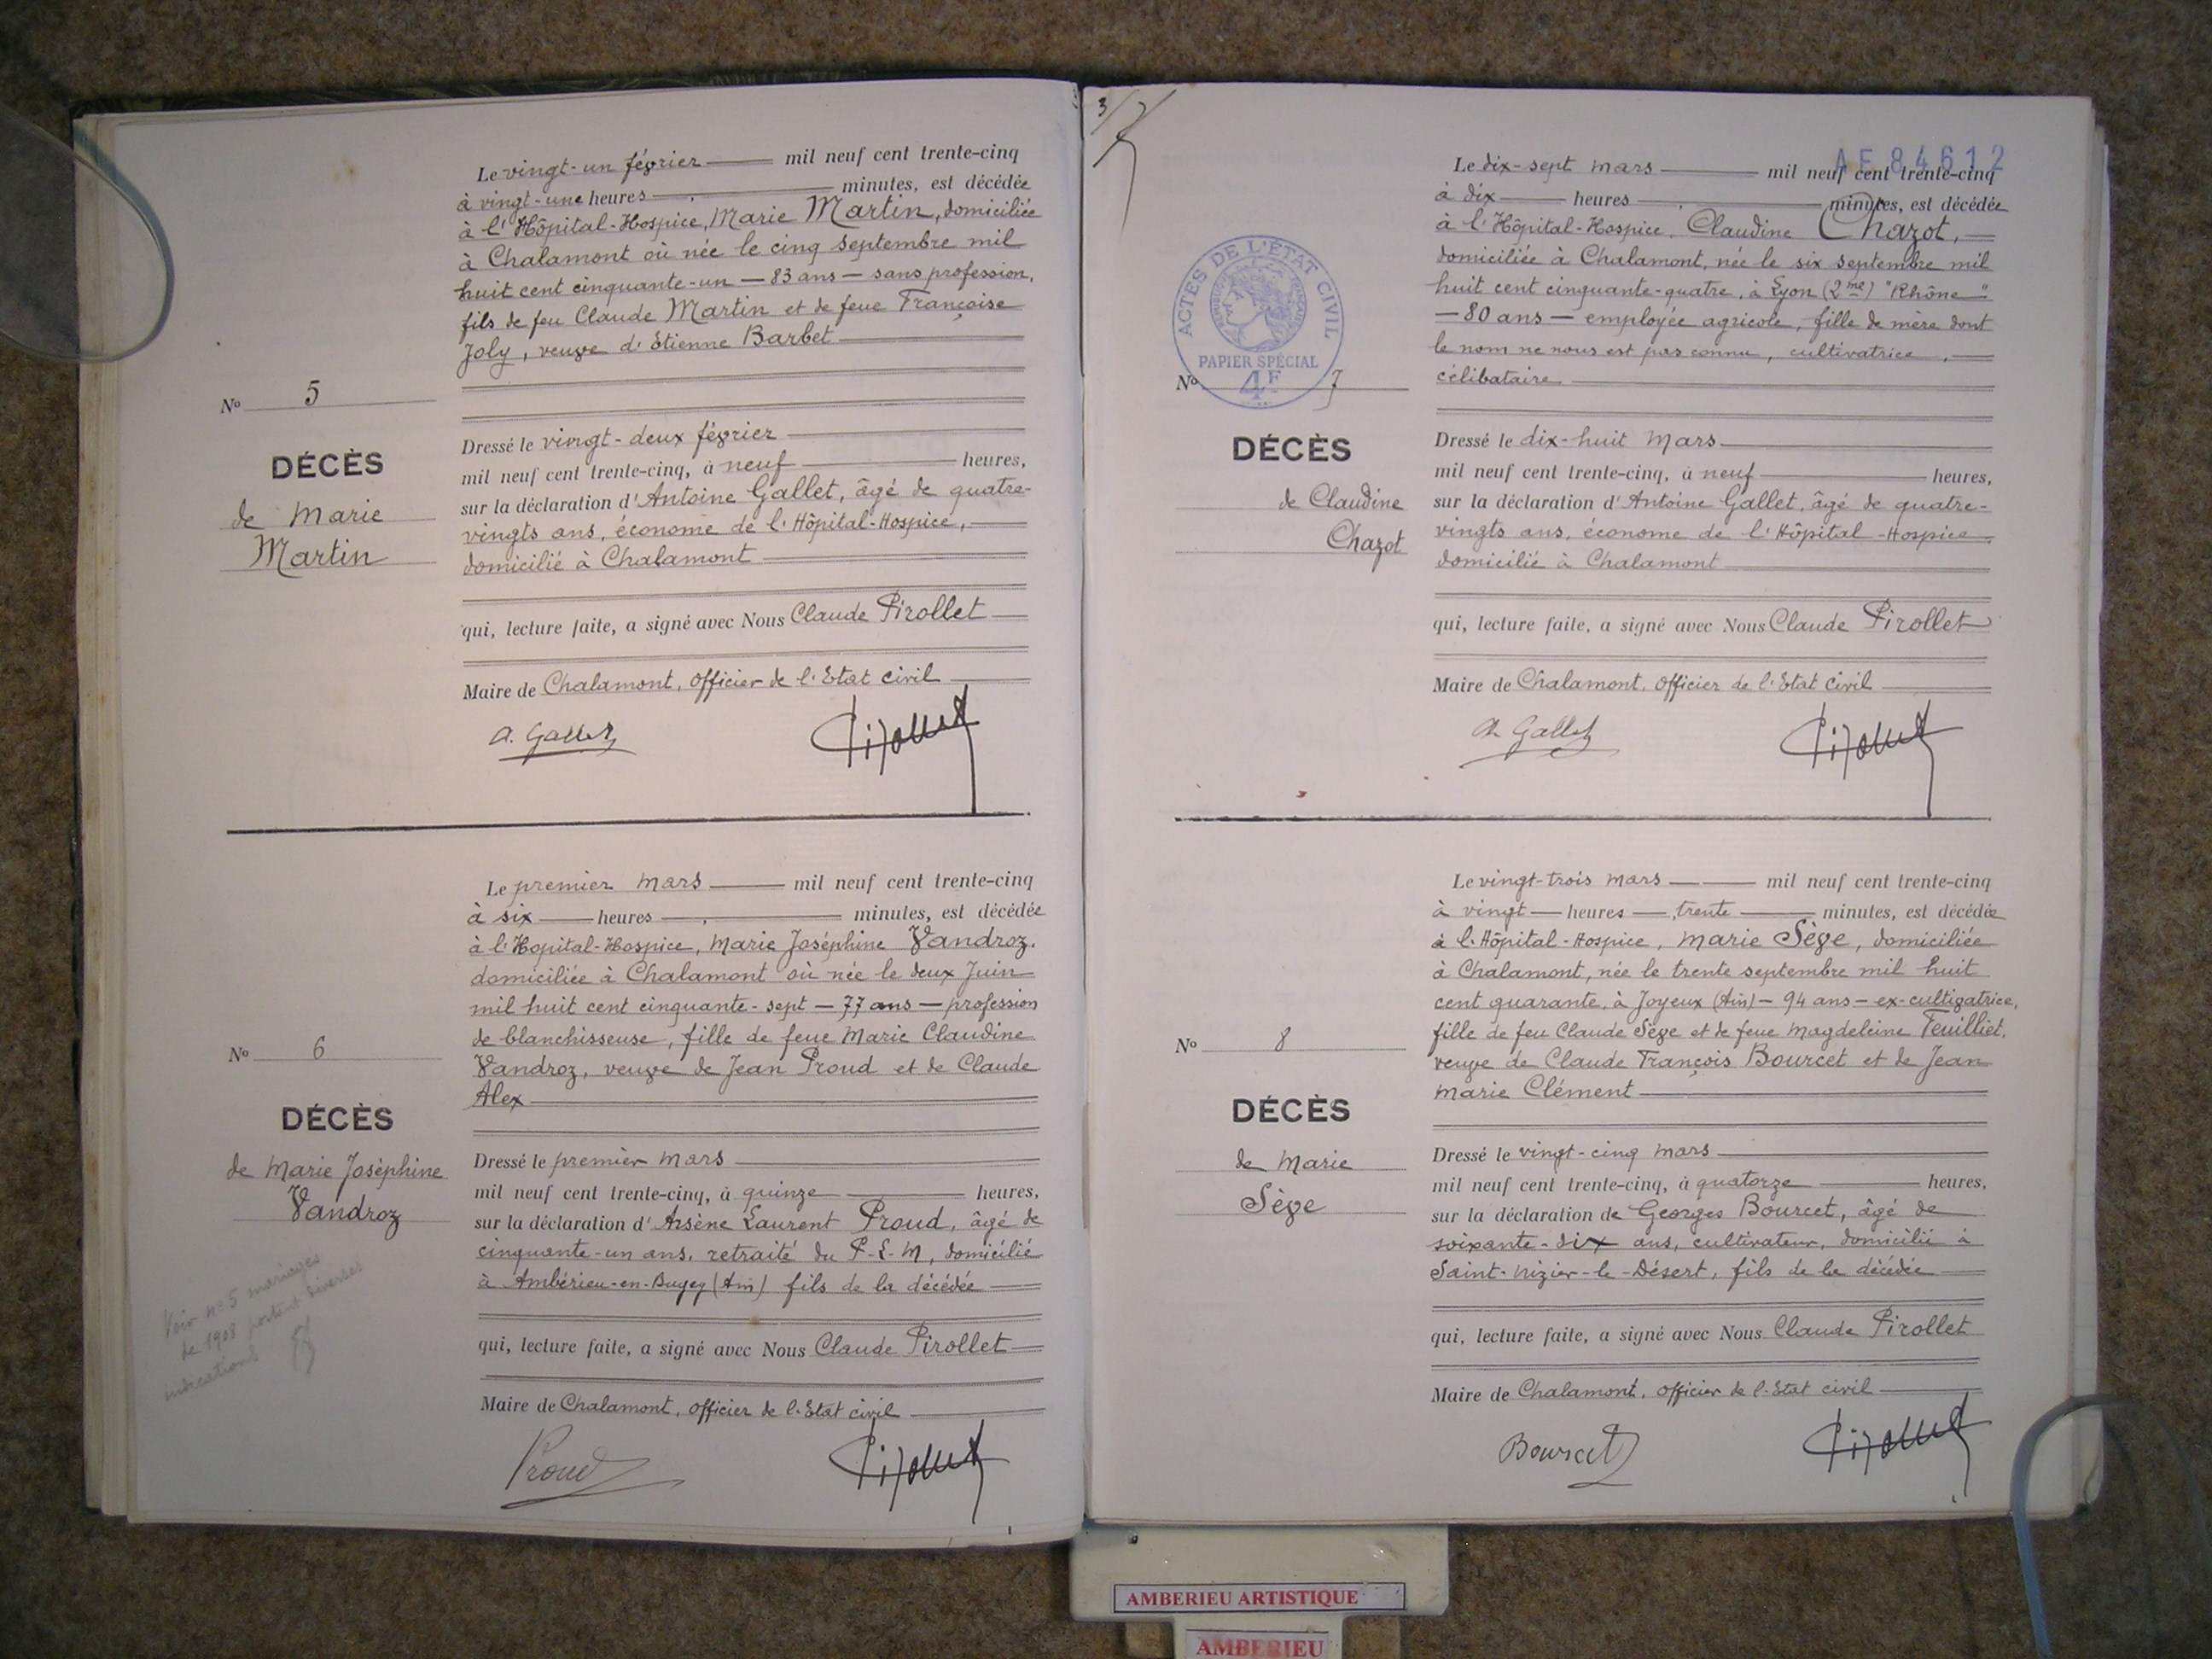 Le vingt-un février mil neuf cent trente-cinq
à vingt-une heures minutes, est décédée
à l'Hôpital-Hospice, Marie Martin, domiciliée
à Chalamont où née le cinq septembre mil
huit cent cinquante-un — 83 ans — sans profession,
fils de feu Claude Martin et de feue Françoise
Joly, veuve d'Etienne Barbet
No 5
DÉCÈS
de Marie
Martin
Dressé le vingt-deux février
mil neuf cent trente-cinq, à neuf heures,
sur la déclaration d'Antoine Gallet, âgé de quatre-
vingts ans, économe de l'Hôpital-Hospice,
domicilié à Chalamont
qui, lecture faite, a signé avec Nous Claude Pirollet
Maire de Chalamont, officier de l'Etat civil
A. Gallet Pirollet
Le premier mars mil neuf cent trente-cinq
à six heures minutes, est décédée
à l'Hopital-Hospice, Marie Joséphine Vandroz,
domiciliée à Chalamont où née le deux Juin
mil huit cent cinquante-sept — 77 ans — profession
de blanchisseuse, fille de feue Marie Claudine
Vandroz, veuve de Jean Proud et de Claude
Alex
No 6
DÉCÈS
de Marie Joséphine
Vandroz
Voir n° 5 mariages
de 1908 portant diverses
indications
Dressé le premier mars
mil neuf cent trente-cinq, à quinze heures,
sur la déclaration d'Arsène Laurent Proud, âgé de
cinquante-un ans, retraité du P-L-M, domicilié
à Ambérieu-en-Bugey (Ain) fils de la décédée
qui, lecture faite, a signé avec Nous Claude Pirollet
Maire de Chalamont, officier de l'Etat civil
Proud Pirollet
3/
AE 84612
Le dix-sept mars mil neuf cent trente-cinq
à dix heures minutes, est décédée
à l'Hôpital-Hospice, Claudine Chazot,
domiciliée à Chalamont, née le six septembre mil
huit cent cinquante-quatre, à Lyon (2me) "Rhône"
— 80 ans — employée agricole, fille de mère dont
le nom ne nous est pas connu, cultivatrice,
célibataire
ACTES DE L'ÉTAT CIVIL
PAPIER SPÉCIAL
4F
No 7
DÉCÈS
de Claudine
Chazot
Dressé le dix-huit mars
mil neuf cent trente-cinq, à neuf heures,
sur la déclaration d'Antoine Gallet, âgé de quatre-
vingts ans, économe de l'Hôpital-Hospice,
domicilié à Chalamont
qui, lecture faite, a signé avec Nous Claude Pirollet
Maire de Chalamont, officier de l'Etat civil
A. Gallet Pirollet
Le vingt-trois mars mil neuf cent trente-cinq
à vingt heures trente minutes, est décédée
à l'Hôpital-Hospice, Marie Sège, domiciliée
à Chalamont, née le trente septembre mil huit
cent quarante, à Joyeux (Ain) — 94 ans — ex-cultivatrice,
fille de feu Claude Sège et de feue Magdeleine Feuilliet,
veuve de Claude François Bourcet et de Jean
Marie Clément
No 8
DÉCÈS
de Marie
Sège
Dressé le vingt-cinq mars
mil neuf cent trente-cinq, à quatorze heures,
sur la déclaration de Georges Bourcet, âgé de
soixante-dix ans, cultivateur, domicilié à
Saint-Nizier-le-Désert, fils de la décédée
qui, lecture faite, a signé avec Nous Claude Pirollet
Maire de Chalamont, officier de l'Etat civil
Bourcet Pirollet
AMBERIEU ARTISTIQUE
AMBERIEU